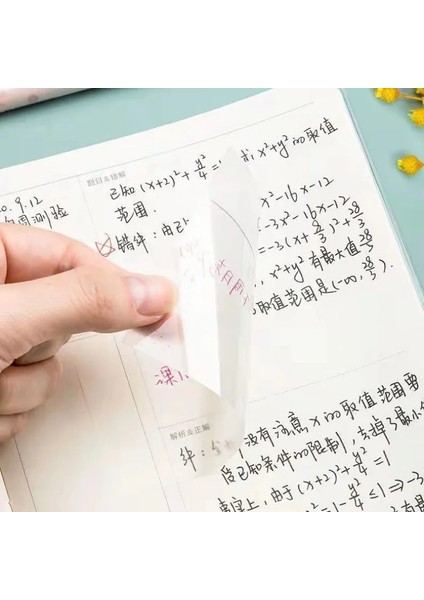 0.9.12
周测验
题目&错解
已知(x+2)²+y²/4=1 求x²+y²的取值
范围.
错解:由已
x²-16x-12
=-3x²-16x-12
=-3(x+8/3)²+28/3
x²+y²有最大值28/3
取值范围是(-∞,28/3).
解析&正解
没有注意x的取值范围要
受已知条件的限制,丢掉了最小
事实上,由于(x+2)²+y²/4=1
=1-y²/4≤1⇒-3